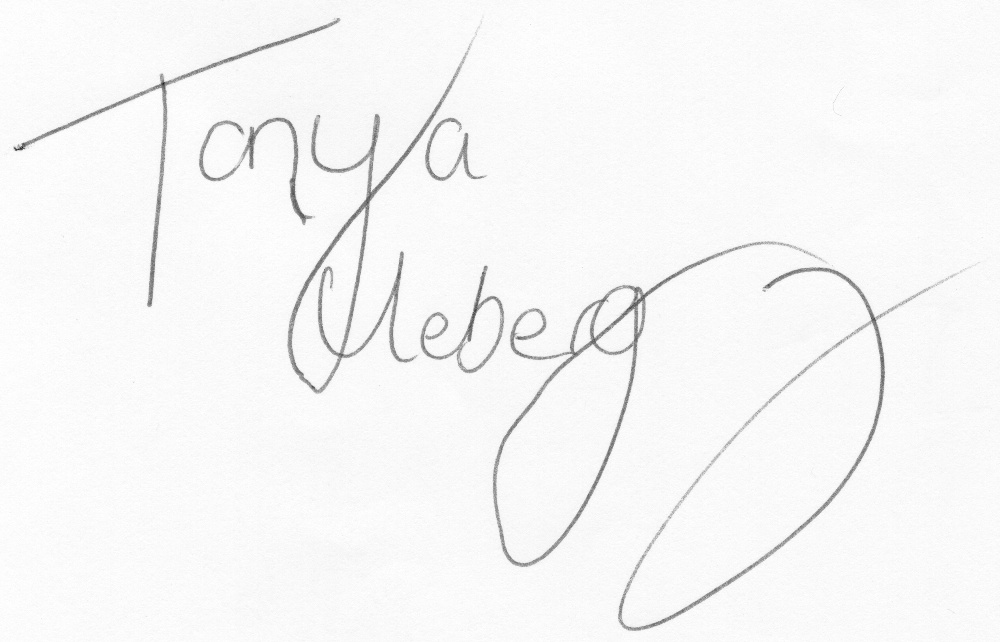 Tanya
Ueberg